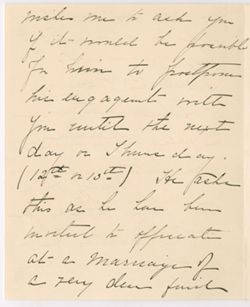 wishes me to ask you
if it would be possible
for him to postpone
his engagement with
you until the next
day or Thursday.
He asks
this as he has been
invited to officiate
at a marriage of
a very dear friend